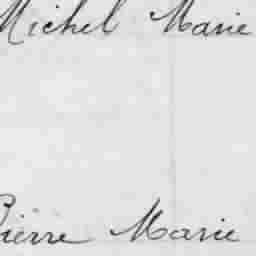 Michel Marie
Pierre Marie